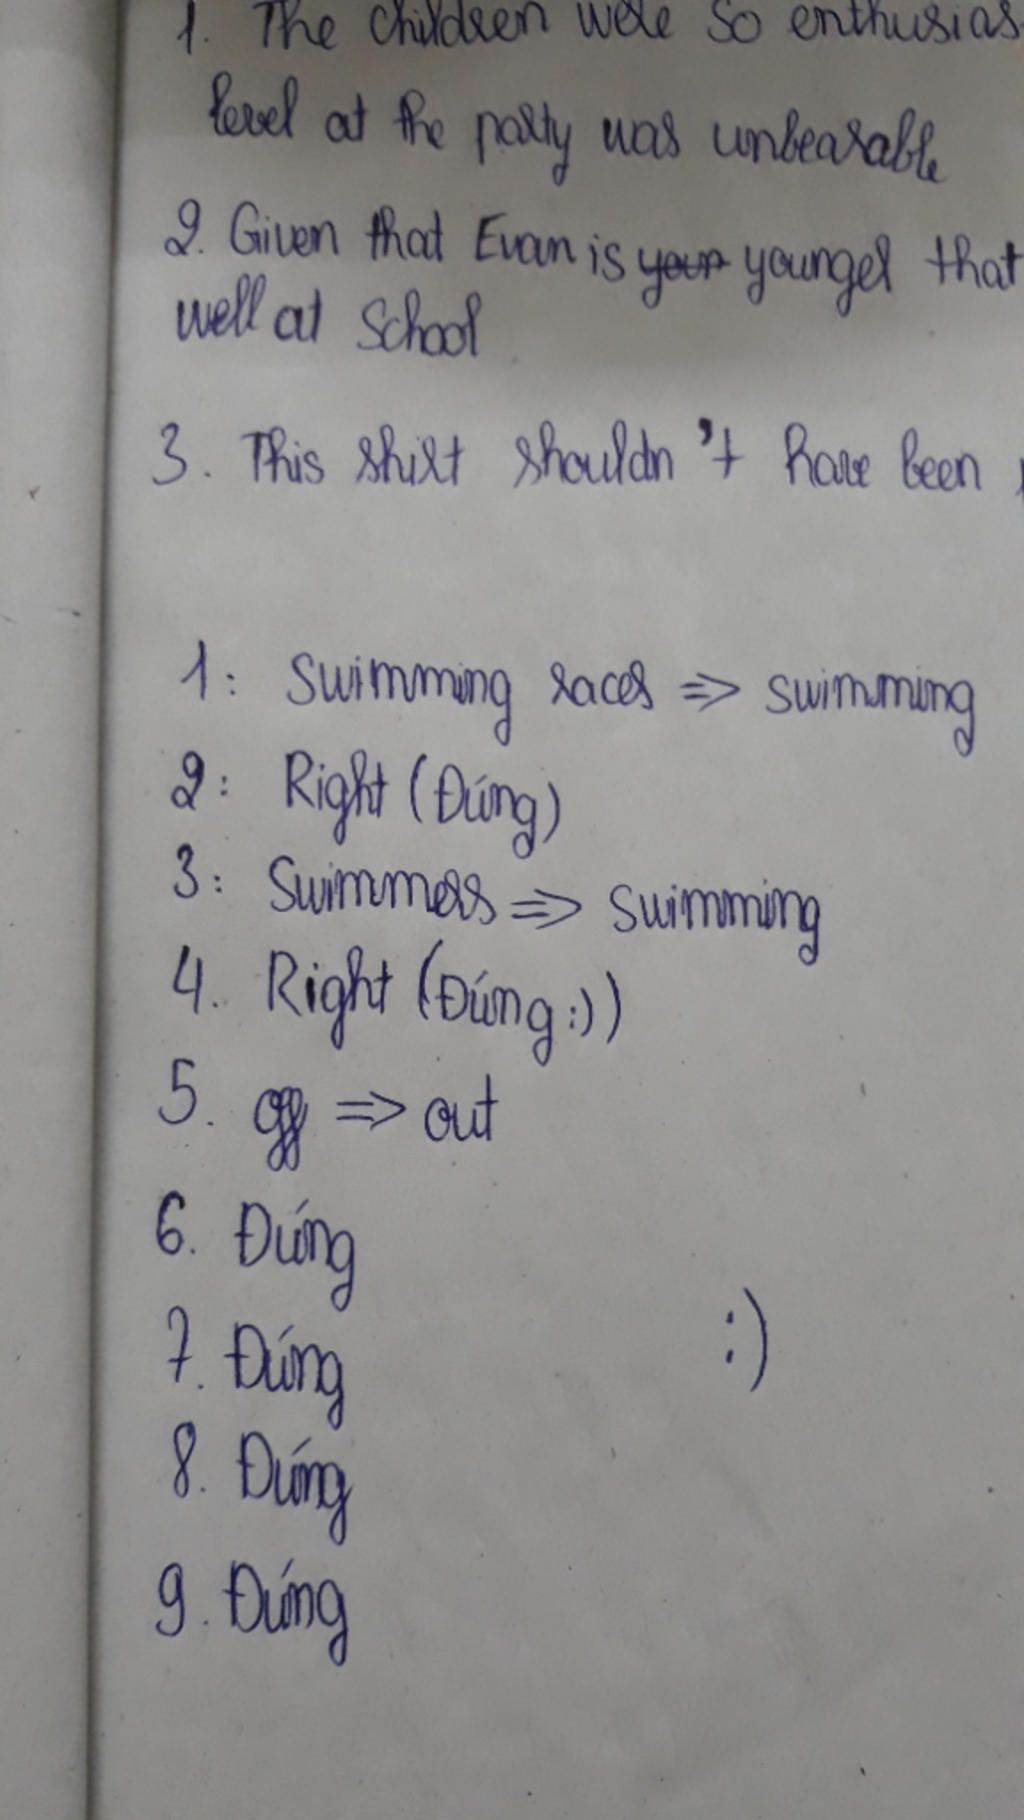 1. The children were so enthusias
level at the party was unbearable
2. Given that Evan is your younger that
well at school
3. This shirt shouldn't have been
1: Swimming races => swimming
2: Right (Đúng)
3: Swimmers => swimming
4. Right (Đúng :))
5. off => out
6. Đúng
7. Đúng
:)
8. Đúng
9. Đúng